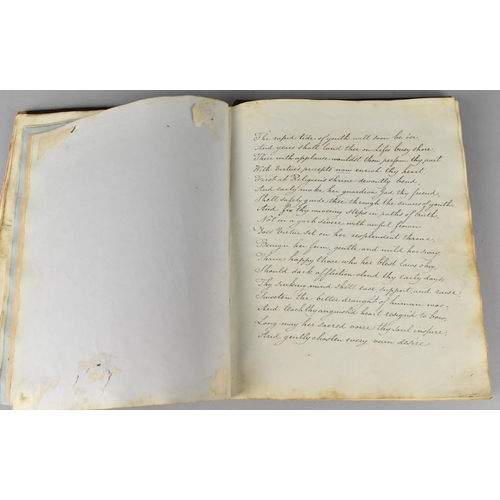 The rapid tide of youth will soon be o'er
And years shall land thee on life's busy shore
There with applause wouldst thou perform thy part
With Virtue's precepts now enrich thy heart
First at Religion's shrine devoutly bend
And early make her guardian God thy friend,
Shall safely guide thee through the snares of youth
And fix thy wavering steps in paths of truth,
Not in a garb severe with awful frown
Does Virtue sit on her resplendent throne
Benign her form, gentle and mild her sway
Them happy those who her blest laws obey
Should dark affliction cloud thy early days
Thy sinking mind she'll ease, support, and raise;
Sweeten the bitter draught of human woe
And teach thy anguish'd heart resign'd to bow,
Long may her sacred voice thy soul inspire;
And gently chasten every vain desire